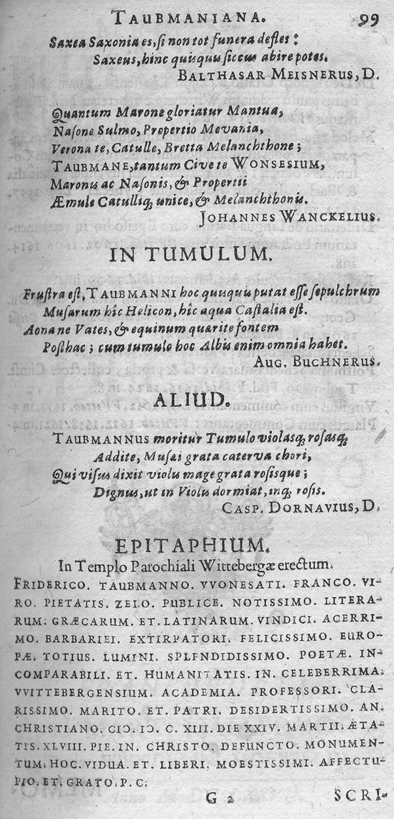 TAUBMANIANA. 99
Saxea Saxonia es, si non tot funera defles:
Saxeus, hinc quisquis siccus abire potes.
BALTHASAR MEISNERUS, D.
Quantum Marone gloriatur Mantua,
Nasone Sulmo, Propertio Mevania,
Verona te, Catulle, Bretta Melanchthone;
TAUBMANE, tantum Cive te WONSESIUM,
Maronis ac Nasonis, & Propertii
Æmule Catulliq, unice, & Melanchthonis.
JOHANNES WANCKELIUS.
IN TUMULUM.
Frustra est, TAUBMANNI hoc quisquis putat esse sepulchrum
Musarum hîc Helicon, hîc aqua Castalia est.
Aonane Vates, & equinum quærite fontem
Posthac; cum tumulo hoc Albis enim omnia habet.
AUG. BUCHNERUS.
ALIUD.
TAUBMANNUS moritur Tumulo violasq, rosasq,
Addite, Musæi grata caterva chori,
Qui visus dixit violis mage grata rosisque;
Dignus, ut in Violis dormiat, inq, rosis.
CASP. DORNAVIUS, D.
EPITAPHIUM.
In Templo Parochiali Wittebergæ erectum.
FRIDERICO. TAUBMANNO. VVONESATI. FRANCO. VI-
RO. PIETATIS. ZELO. PUBLICE. NOTISSIMO. LITERA-
RUM. GRÆCARUM. ET. LATINARUM. VINDICI. ACERRI-
MO. BARBARIEI. EXTIRPATORI. FELICISSIMO. EURO-
PÆ. TOTIUS. LUMINI. SPLENDIDISSIMO. POETÆ. IN-
COMPARABILI. ET. HUMANITATIS. IN. CELEBERRIMA.
VVITTEBERGENSIUM. ACADEMIA. PROFESSORI. CLA-
RISSIMO. MARITO. ET. PATRI. DESIDERTISSIMO. AN.
CHRISTIANO. CIↃ. IↃ. C. XIII. DIE XXIV. MARTII. ÆTA-
TIS. XLVIII. PIE. IN. CHRISTO. DEFUNCTO. MONUMEN-
TUM. HOC. VIDUA. ET. LIBERI. MOESTISSIMI. AFFECTU-
PIO. ET. GRATO. P. C.
G 2 SCRI-